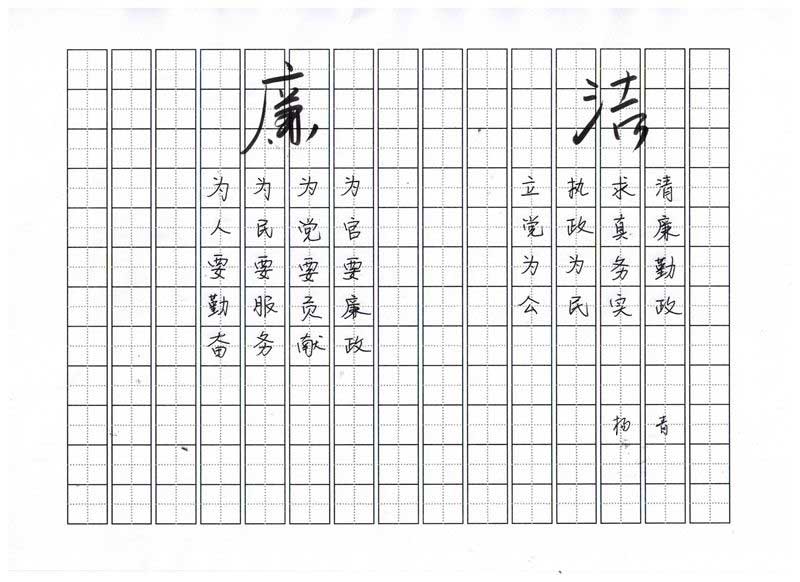 廉 洁
清廉勤政
求真务实
执政为民
立党为公
为官要廉政
为党要贡献
为民要服务
为人要勤奋
杨 青